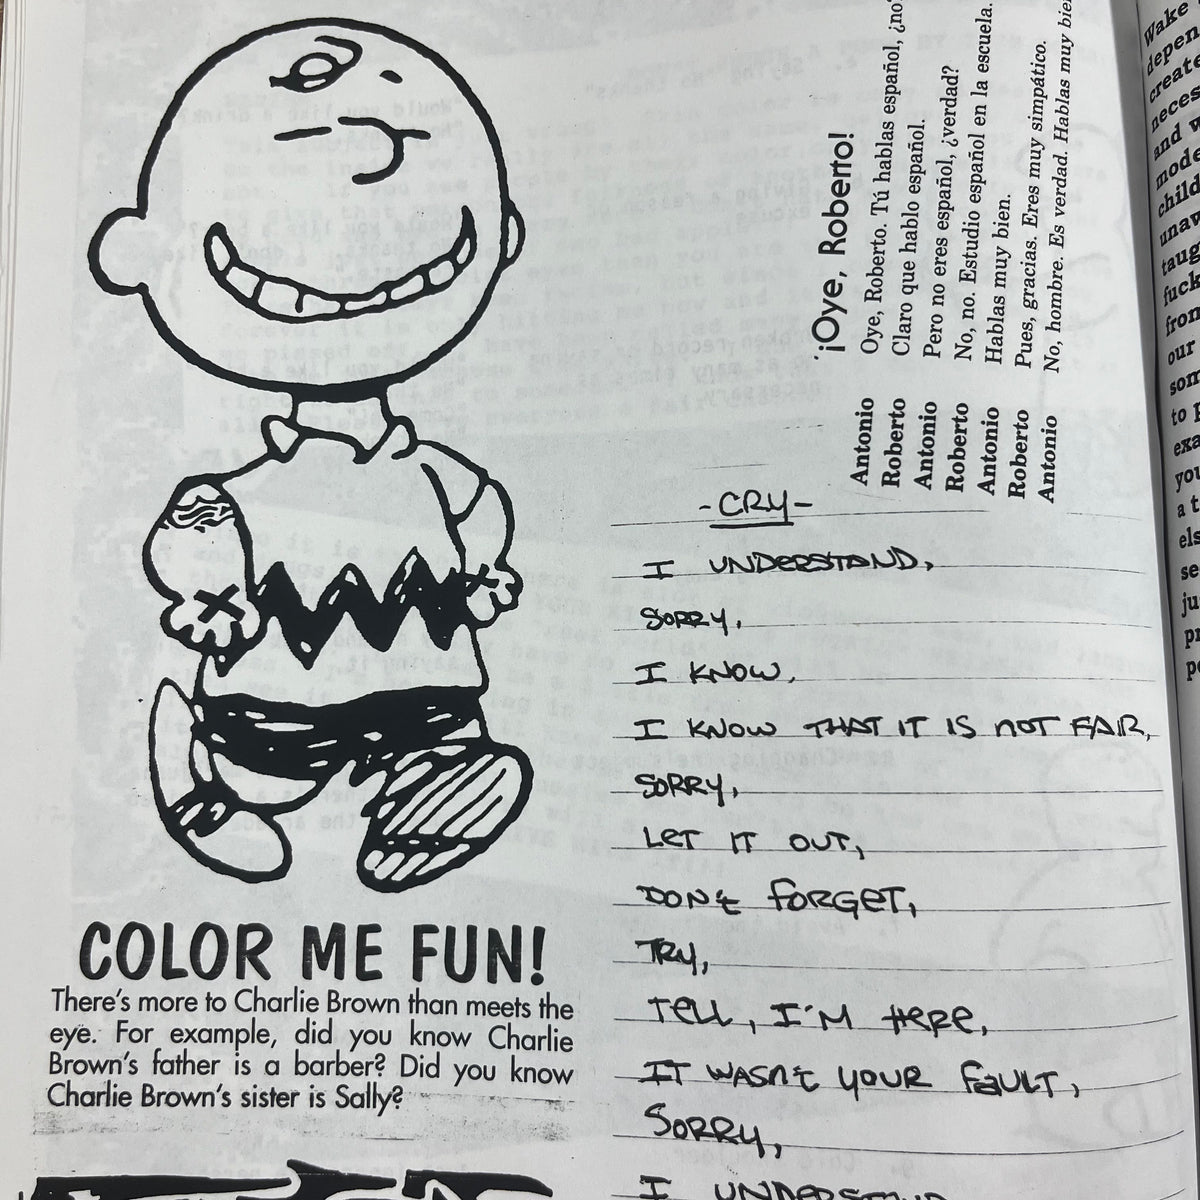 COLOR ME FUN!
There's more to Charlie Brown than meets the
eye. For example, did you know Charlie
Brown's father is a barber? Did you know
Charlie Brown's sister is Sally?
¡Oye, Roberto!
Antonio Oye, Roberto. Tú hablas español, ¿no?
Roberto Claro que hablo español.
Antonio Pero no eres español, ¿verdad?
Roberto No, no. Estudio español en la escuela.
Antonio Hablas muy bien.
Roberto Pues, gracias. Eres muy simpático.
Antonio No, hombre. Es verdad. Hablas muy bien
-CRY-
I UNDERSTAND,
SORRY,
I KNOW,
I KNOW THAT IT IS NOT FAIR,
SORRY,
LET IT OUT,
DON't FORGET,
TRY,
TELL, I'M HERE,
IT WASN't YOUR FAULT,
SORRY,
I UNDERSTAND
Wake
depen
create
neces
and w
mode
child
unav
taug
fuck
from
our
som
to p
exa
you
a t
els
se
ju
pr
pe